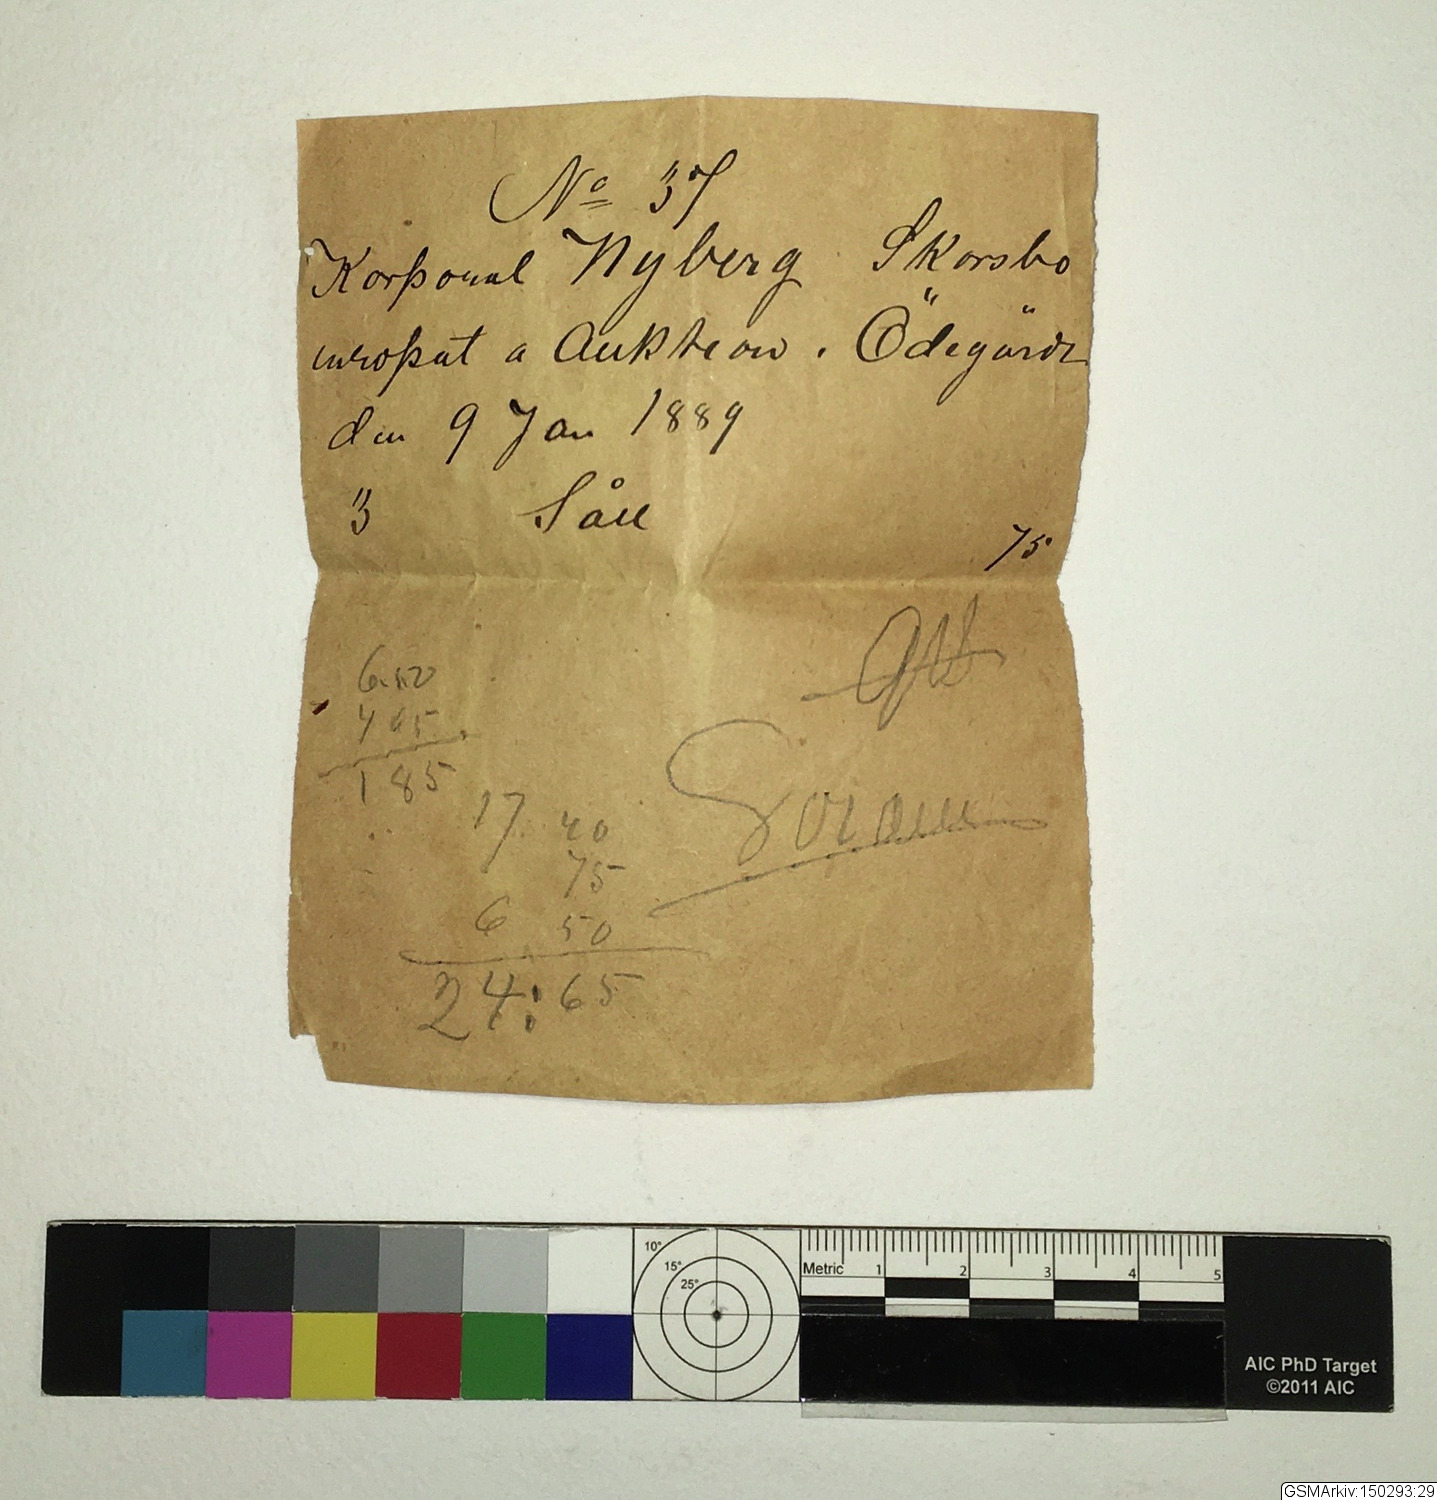 No 37
Korporal Nyberg Skorsbo
inropat a Auktion. Ödegärdz
den 9 Jan 1889
3 Såll 75
6.50
4 65
1 85
17 40
75
6 50
24:65
10°
15°
25°
Metric 1 2 3 4 5
AIC PhD Target
©2011 AIC
GSMArkiv:150293:29